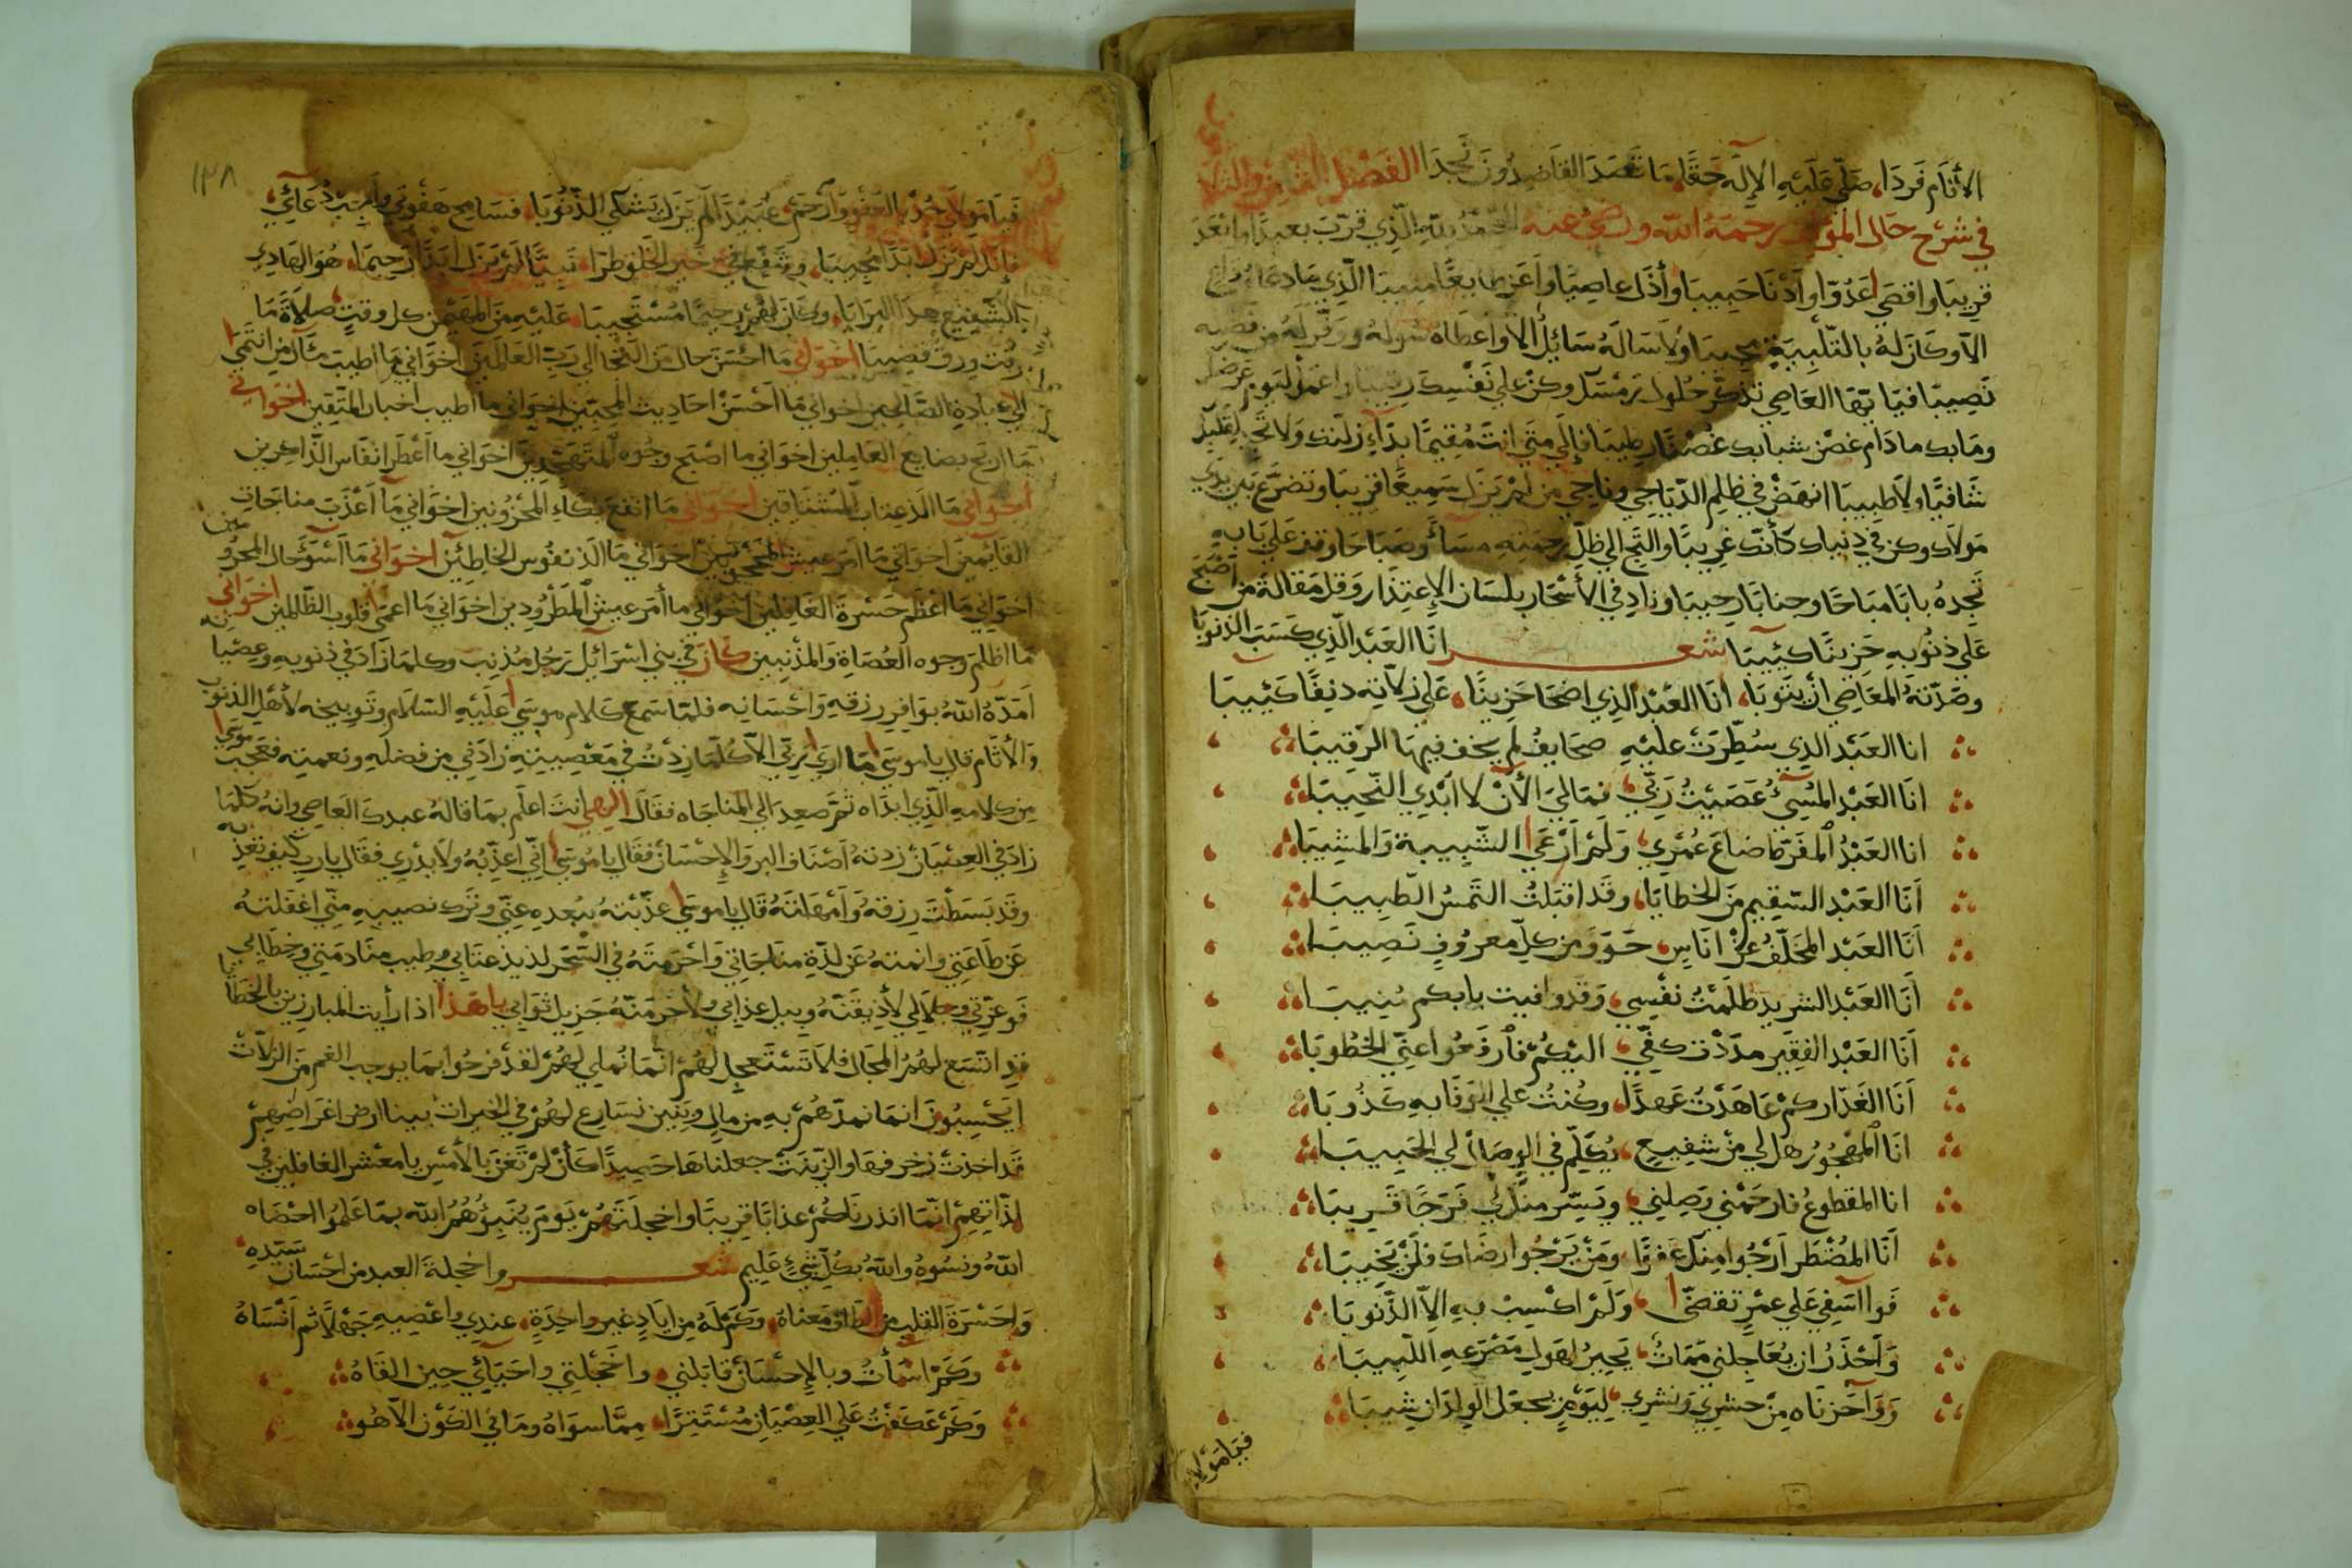 الأنام فردا، صلى عليه الإله حقا، ما قصد القاصدون نجدا الفصل الثامن والثلا
في شرح حال المؤلف رحمه الله ورضي عنه الحمد لله الذي قرب بعيدا وابعد
قريبا واقصى عدوا وأدنا حبيبا وأذل عاصيا واعز طايعا منيبا الذي ما دعاه داع
الا وكان له بالتلبية مجيبا ولا ساله سائل الا واعطاه سوله ووفر له من فضله
نصيبا فيا ايها العاصي تذكر حلول رمسك وكن على نفسك رقيبا واعمل ليوم عرضك
وما بك ما دام غصن شبابك غصنا رطيبا فإلى متى انت مقيما بداء زلتك ولا تجد لقلبك
شافيا ولا طبيبا انهض في ظلم الدياجي وناجي من لم يزل سميعا قريبا وتضرع بين يدي
مولاك وكن في دنياك كأنك غريبا والتجي الى ظل رحمته مساء وصباحا وقف على بابه
تجده بابا مباحا وجنابا رحيبا وناد في الأسحار بلسان الإعتذار وقل مقالة من اصبح
على ذنوبه حزينا كئيبا شعر انا العبد الذي كسب الذنوبا
وصدته المعاصي ان يتوبا، انا العبد الذي اضحا حزينا، على زلاته دنفا كئيبا
انا العبد الذي سطرت عليه صحايف لم يخف فيها الرقيبا
انا العبد المسيء عصيت ربي، فمالي الأن لا ابدي النحيبا
انا العبد المفرط ضاع عمري، ولم أرعى الشبيبة والمشيبا
أنا العبد السقيم من الخطايا، وقد اقبلت التمس الطبيبا
أنا العبد المخلف عن اناس، حووا من كل معروف نصيبا
أنا العبد الشريد ظلمت نفسي، وقد وافيت بابكم منيبا
أنا العبد الفقير مددت كفي، اليكم فارفعوا عني الخطوبا
أنا الغدار كم عاهدت عهدا، وكنت على الوفا به كذوبا
انا المهجور هل لي من شفيع، يكلم في الوصال لي الحبيبا
انا المقطوع فارحمني وصلني، ويسر منك لي فرجا قريبا
أنا المضطر ارجوا منك عفوا، ومن يرجوا رضاك فلن يخيبا
فوا اسفي على عمر تقضى، ولم اكسب به الا الذنوبا
وأحذر ان يعاجلني ممات، يحير لهول مصرعه اللبيبا
ووآحزناه من حشري ونشري، ليوم يجعل الولدان شيبا
فيا مولا
١٣٨
فيا مولاي جد بالعفو وارحم، عبيدا لم يزل يشكي الذنوبا، فسامح هفوتي واجب دعائي،
فإنك لم تزل ابدا مجيبا، وشفع في خير الخلق طرا، نبيا لم يزل ابدا رحيما، هو الهادي
الشفيع هدا البرايا، وكان لهم رحيما مستجيبا، عليه من المهيمن كل وقت، صلاة ما
قضيبا اخواني ما احسن حال من التجا الى رب العالمين اخواني ما اطيب منال من انتمى
الى عبادة الصالحين اخواني ما احسن احاديث المحبين اخواني ما اطيب اخبار المتقين اخواني
ما اربح بضايع العاملين اخواني ما اصبح وجوه المتهجدين اخواني ما اعطر انفاس الذاكرين
اخواني ما الذ عتاب المشتاقين اخواني ما انفع بكاء المحزونين اخواني ما اعذب مناجات
القائمين اخواني ما امر عيش المحجوبين اخواني ما الذ نفوس الخاطئين اخواني ما اسوء حال المحرومين
اخواني ما اعظم حسرة الغافلين اخواني ما أمر عيش المطرودين اخواني ما اعمى قلوب الظالمين اخواني
ما اظلم وجوه العصاة والمذنبين كان في بني اسرائيل رجل مذنب وكلما زاد في ذنوبه وعصيانه
امده الله بوافر رزقه واحسانه فلما سمع كلام موسى عليه السلام وتوبيخه لأهل الذنوب
والأثام قال يا موسى ما ارى ربي الا كلما زدت في معصيته زادني من فضله ونعمته فعجب موسى
من كلامه الذي ابداه ثم صعد الى المناجاه فقال الهي انت اعلم بما قاله عبدك العاصي وانه كلما
زاد في العصيان زدته أصناف البر والإحسان فقال يا موسى اني اعذبه ولا يدري فقال يا رب كيف تعذبه
وقد بسطت رزقه وامهلته قال يا موسى عذبته ببعده عني وترك نصيبه مني اغفلته
عن طاعتي وانمته عن لذة مناجاتي واحرمته في السحر لذيذ عتابي وطيب منادمتي وخطابي
فوعزتي وجلالي لأذيقنه وبيل عذابي ولأحرمنه جزيل ثوابي يا هذا اذا رأيت المبارزين بالخطايا
قد اتسع لهم المجال فلا تستعجل لهم انما نملي لهم لقد فرحوا بما يوجب الغم من الزلات
ايحسبون انما نمدهم به من مال وبنين نسارع لهم في الخيرات بينا ارض اغراضهم
قد اخذت زخرفها وازينت جعلناها حصيدا كأن لم تغن بالأمس يا معشر الغافلين في
لذاتهم انما انذرناكم عذابا قريبا واخجلتهم يوم ينبؤهم الله بما عملوا احصاه
الله ونسوه والله بكل شيء عليم شعر واخجلة العبد من احسان سيده،
واحسرة القلب من الطاف معناه، وكم له من اياد غير واحدة، عندي واعصيه جهلا ثم انساه
وكم اسأت وبالإحسان قابلني، واخجلتي واحيائي حين القاه
وكم عكفت على العصيان مستترا، مما سواه وما في الكون الا هو